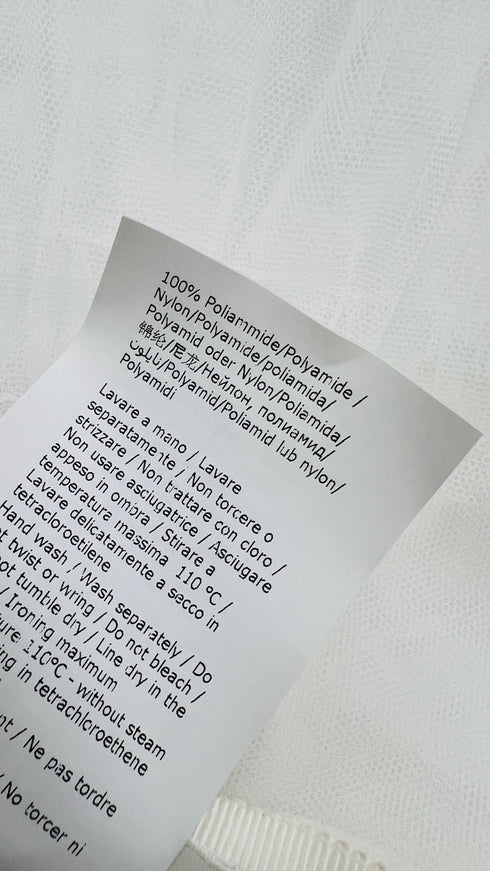 100% Poliammide/Polyamide /
Nylon/Polyamide/poliamida/
Polyamid oder Nylon/Poliamida/
锦纶/尼龙/Нейлон, полиамид/
نايلون/Polyamid/Poliamid lub nylon/
Polyamidi
Lavare a mano / Lavare
separatamente / Non torcere o
strizzare / Non trattare con cloro /
Non usare asciugatrice / Asciugare
appeso in ombra / Stirare a
temperatura massima 110 °C /
Lavare delicatamente a secco in
tetracloroetilene
Hand wash / Wash separately / Do
twist or wring / Do not bleach /
not tumble dry / Line dry in the
/ Ironing maximum
110°C - without steam
in tetrachloroethene
/ Ne pas tordre
/ No torcer ni